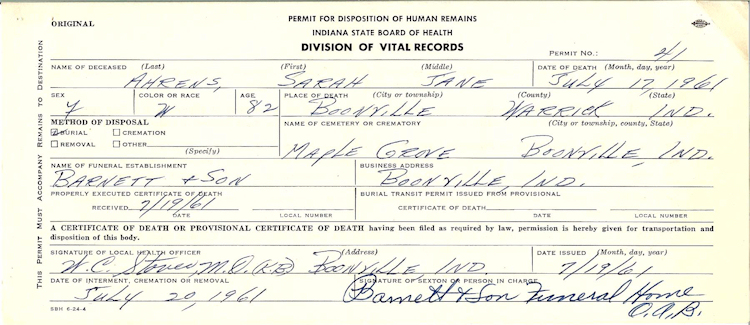 ORIGINAL
PERMIT FOR DISPOSITION OF HUMAN REMAINS
INDIANA STATE BOARD OF HEALTH
DIVISION OF VITAL RECORDS
PERMIT NO.: 41
THIS PERMIT MUST ACCOMPANY REMAINS TO DESTINATION
NAME OF DECEASED (Last) (First) (Middle) DATE OF DEATH (Month, day, year)
AHRENS, SARAH JANE JULY 17, 1961
SEX COLOR OR RACE AGE PLACE OF DEATH (City or township) (County) (State)
W 82 BOONVILLE WARRICK IND.
METHOD OF DISPOSAL NAME OF CEMETERY OR CREMATORY (City or township, county, State)
BURIAL CREMATION
REMOVAL OTHER
(Specify)
MAPLE GROVE BOONVILLE, IND.
NAME OF FUNERAL ESTABLISHMENT BUSINESS ADDRESS
BARNETT & SON BOONVILLE, IND.
PROPERLY EXECUTED CERTIFICATE OF DEATH BURIAL TRANSIT PERMIT ISSUED FROM PROVISIONAL
RECEIVED 7/19/61 CERTIFICATE OF DEATH
DATE LOCAL NUMBER DATE LOCAL NUMBER
A CERTIFICATE OF DEATH OR PROVISIONAL CERTIFICATE OF DEATH having been filed as required by law, permission is hereby given for transportation and
disposition of this body.
SIGNATURE OF LOCAL HEALTH OFFICER (Address) DATE ISSUED (Month, day, year)
W.C. Stover, M.D. (KB) BOONVILLE, IND. 7/19/61
DATE OF INTERMENT, CREMATION OR REMOVAL SIGNATURE OF SEXTON OR PERSON IN CHARGE
JULY 20, 1961 Barnett & Son Funeral Home
O.A.B.
SBH 6-24-4